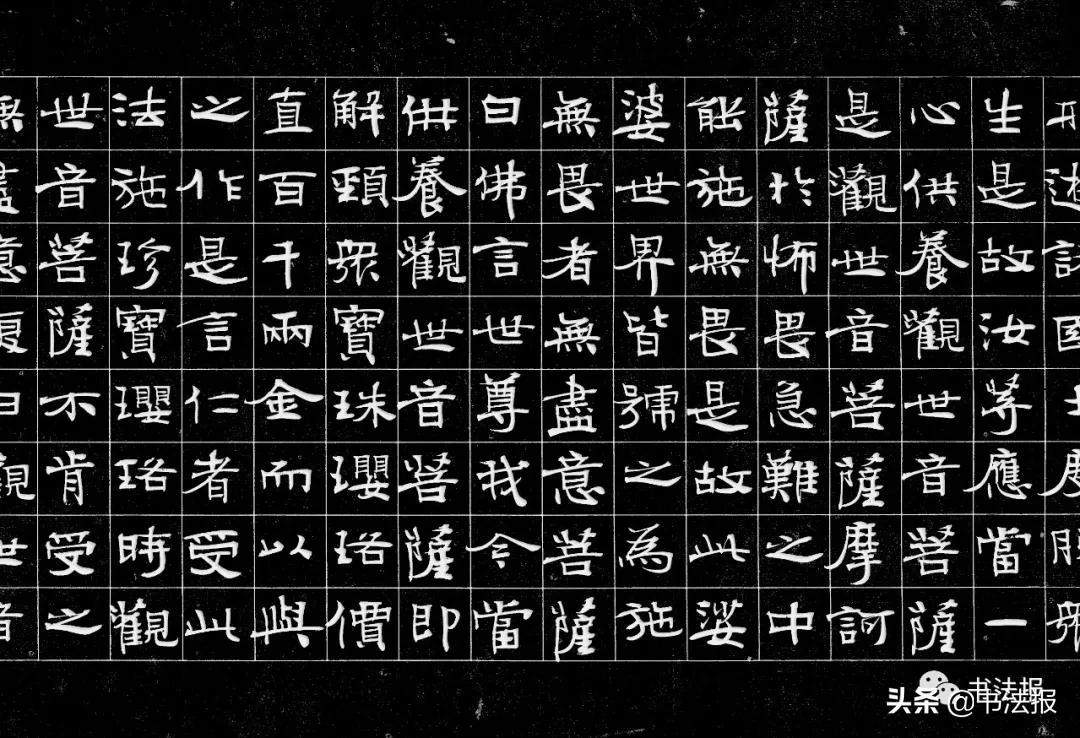 生是故汝等應當一
心供養觀世音菩薩
是觀世音菩薩摩訶
薩於怖畏急難之中
能施無畏是故此娑
婆世界皆號之為施
無畏者無盡意菩薩
白佛言世尊我今當
供養觀世音菩薩即
解頸眾寶珠瓔珞價
直百千兩金而以與
之作是言仁者受此
法施珍寶瓔珞時觀
世音菩薩不肯受之
無盡意復白觀世音
书法报
头条@书法报